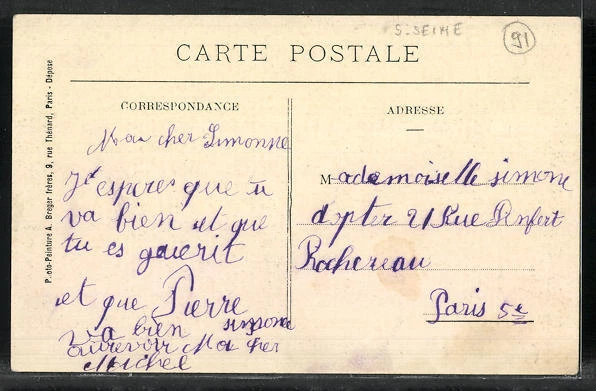 S-SEINE
91
CARTE POSTALE
Photo-Peinture A. Breger frères, 9, rue Thénard, Paris - Déposé
CORRESPONDANCE
Ma cher Simonne
J'espere que tu
va bien et que
tu es guerit
et que Pierre
va bien simone
aurevoir Ma cher
Michel
ADRESSE
Mademoiselle simone
21 Rue Denfert
Rochereau
Paris 5e